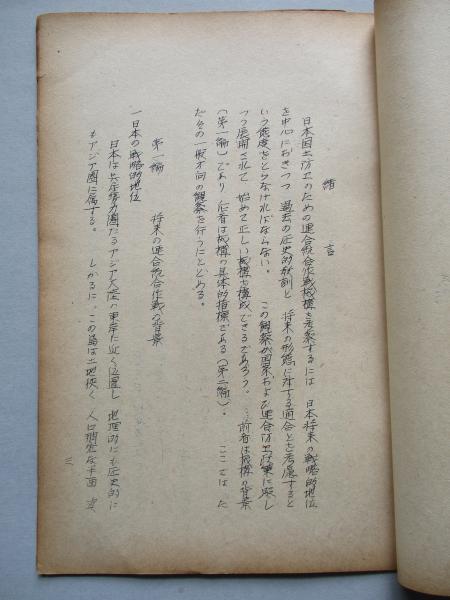 緒言
日本国土防卫のための連合統合作戦機構を考察するには 日本将来の戦略的地位
を中心におきつつ 過去の歴史的教訓と 将来の形態に対する適合とを考慮すると
いう態度をとらなければならない。 この観察が国家および連合防卫政策に即し
つつ展開されて 始めて正しい機構を構成できるであろう。 前者は機構の背景
(第一編)であり 后者は機構の具体的指標である(第二編)。 ここでは た
だその一般方向の観察を行うにとどめる。
第一編 将来の連合統合作戦の背景
一日本の戦略的地位
日本は共产勢力圏たるアジア大陸の東岸に近く位置し 地理的にも歴史的に
もアジア圏に属する。 しかるに、この島は土地狭く 人口稠密な半面 資